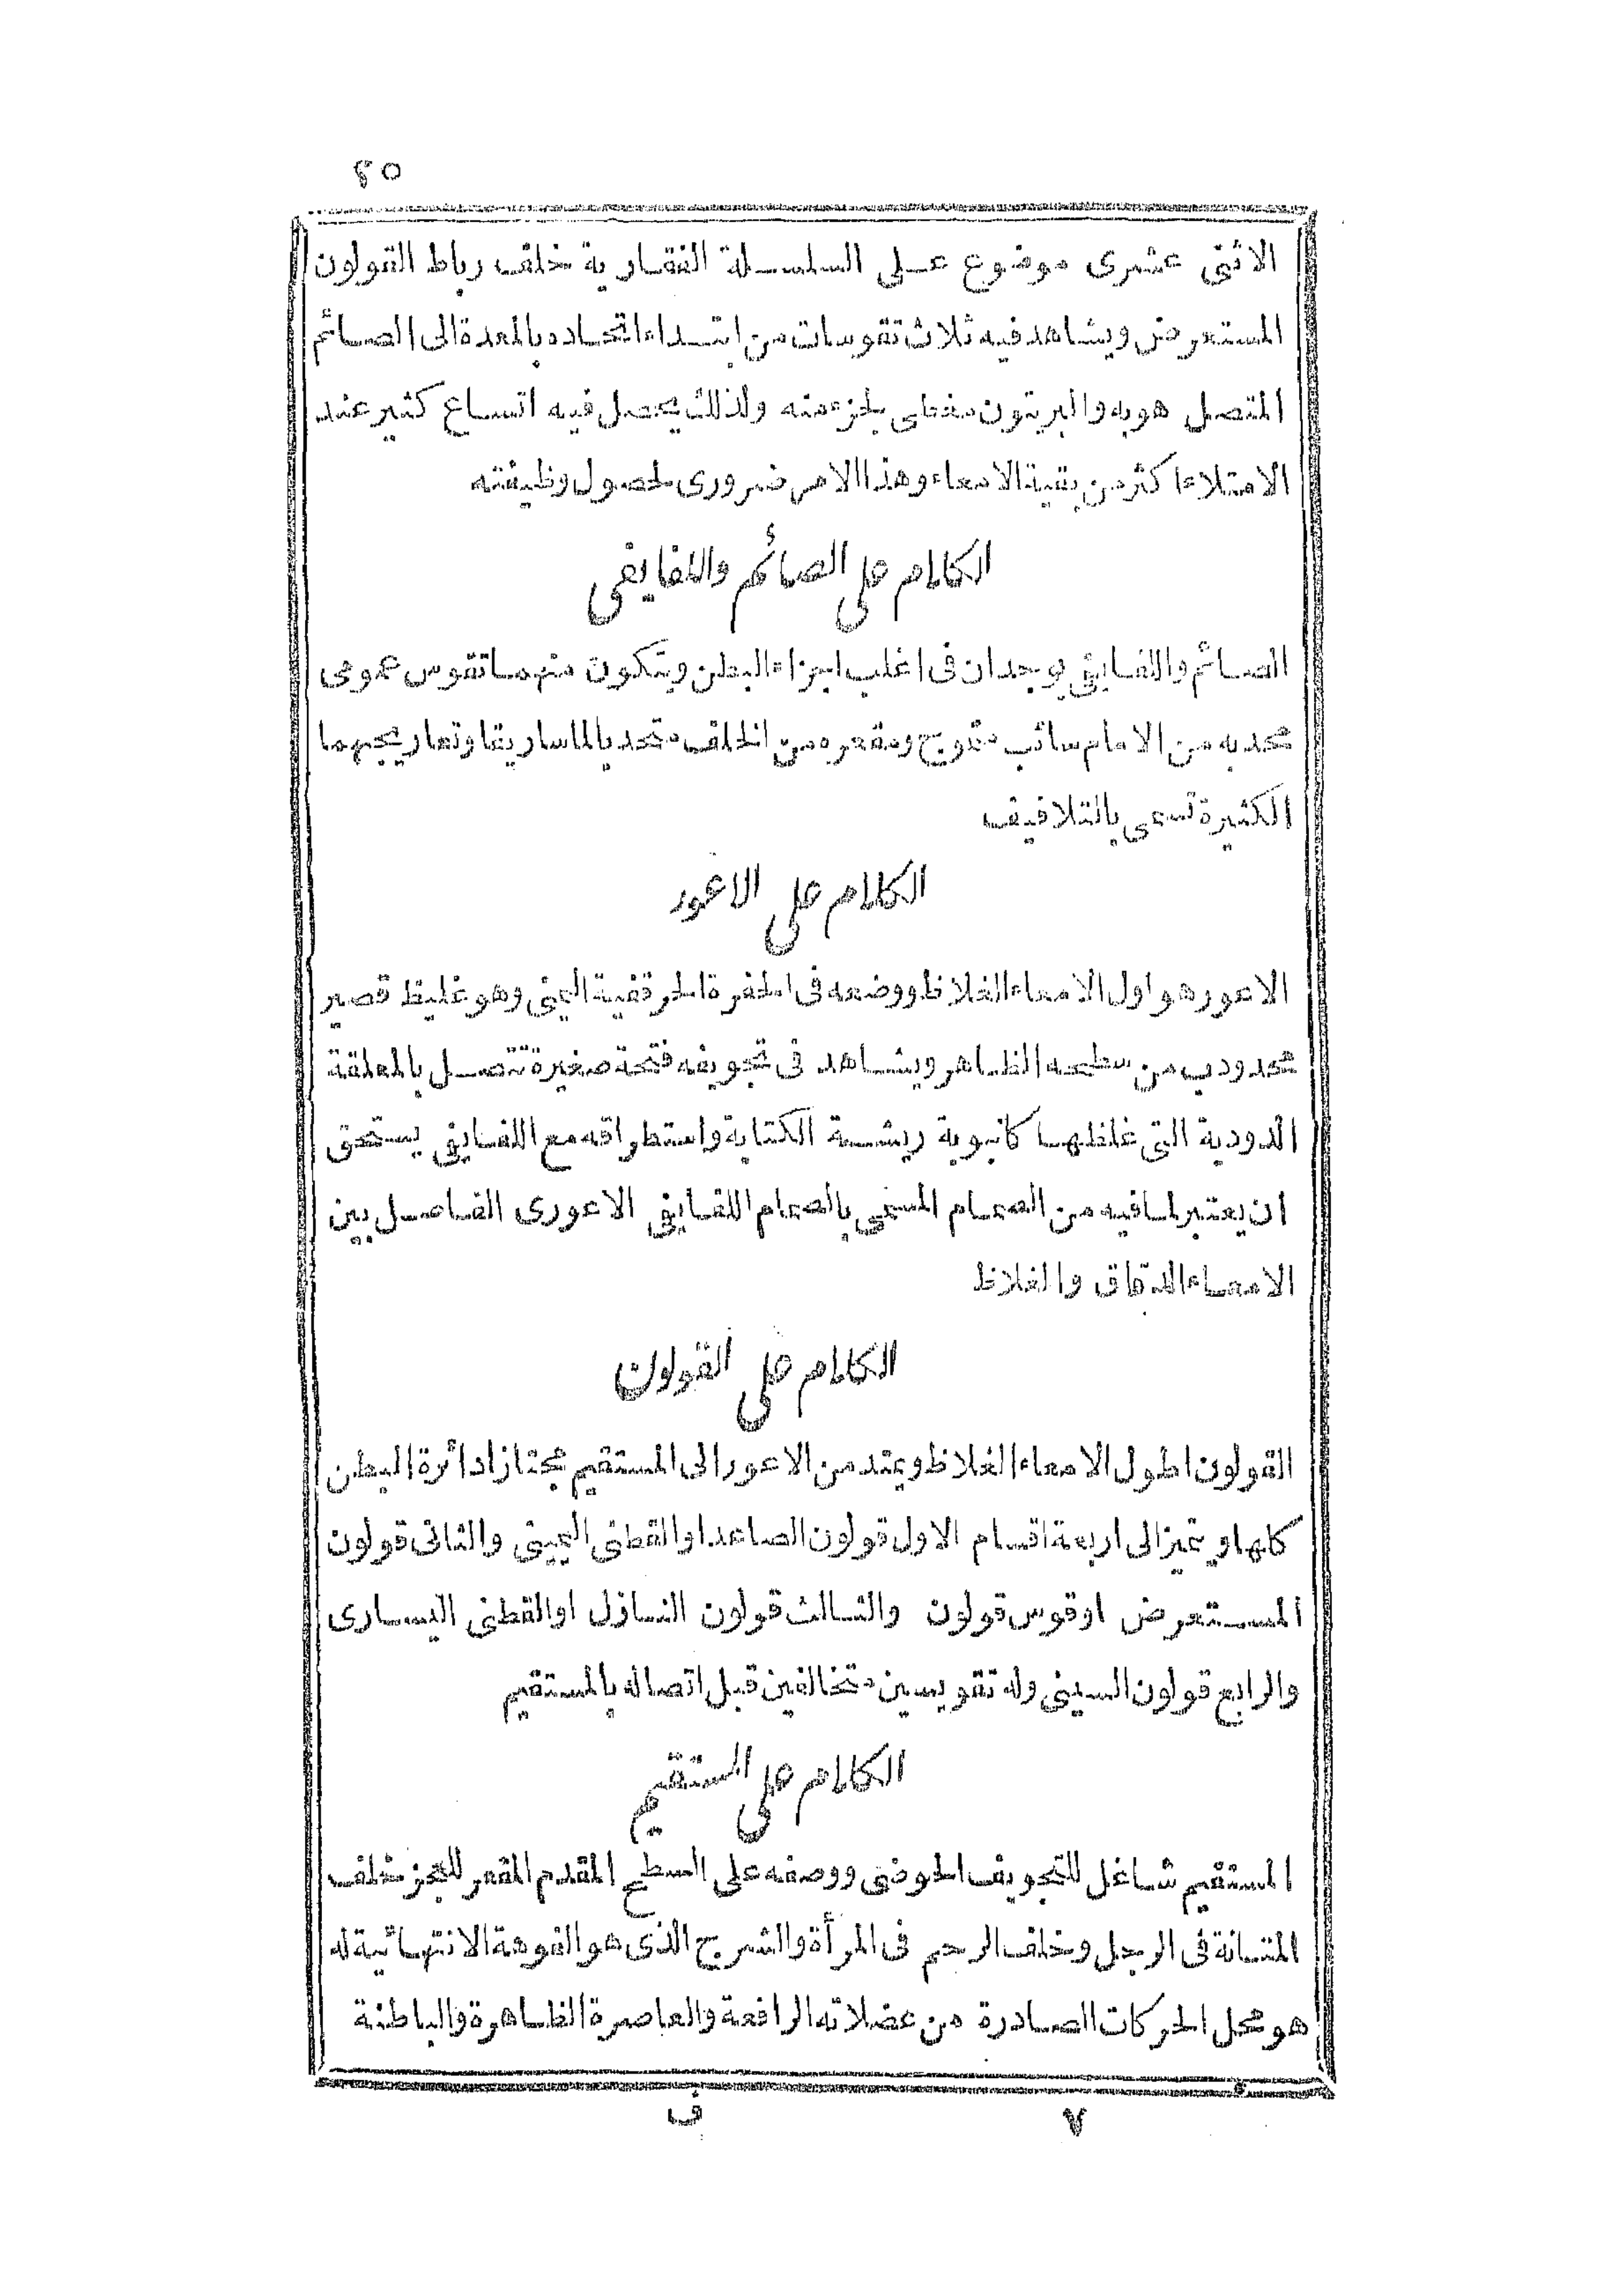 ٢٥
الاثنى عشرى موضوع على السلسلة الفقارية خلف رباط القولون
المستعرض ويشاهد فيه ثلاث تقوسات من ابتداء اتحاده بالمعدة الى الصائم
المتصل هو به والبريتون مغطى لجزء منه ولذلك يحصل فيه اتساع كثير عند
الامتلاء اكثر من بقية الامعاء وهذا الامر ضرورى لحصول وظيفته
الكلام على الصائم واللفايفى
الصائم واللفايفى يوجدان فى اغلب اجزاء البطن ويتكون منهما تقوس عمومى
محدبه من الامام سائب متموج ومقعره من الخلف متحد بالماساريقا وتعاريجهما
الكثيرة تسمى بالتلافيف
الكلام على الاعور
الاعور هو اول الامعاء الغلاظ ووضعه فى الحفرة الحرقفية اليمنى وهو غليظ قصير
محدودب من سطحه الظاهر ويشاهد فى تجويفه فتحة صغيرة تتصل بالمعلقة
الدودية التى غلظها كانبوبة ريشة الكتابة واستطراقه مع اللفايفى يستحق
ان يعتبر لما فيه من الصمام المسمى بالصمام اللفايفى الاعورى الفاصل بين
الامعاء الدقاق والغلاظ
الكلام على القولون
القولون اطول الامعاء الغلاظ ويمتد من الاعور الى المستقيم مجتازا دائرة البطن
كلها ويتميز الى اربعة اقسام الاول قولون الصاعد او القطنى اليمينى والثانى قولون
المستعرض او قوس قولون والثالث قولون النازل او القطنى اليسارى
والرابع قولون السينى وله تقويسين متخالفين قبل اتصاله بالمستقيم
الكلام على المستقيم
المستقيم شاغل للتجويف الحوضى ووضعه على السطح المقدم المقعر للعجز خلف
المثانة فى الرجل وخلف الرحم فى المرأة والشرج الذى هو الفوهة الانتهائية له
هو محل الحركات الصادرة من عضلاته الرافعة والعاصرة الظاهرة والباطنة
٧ ف